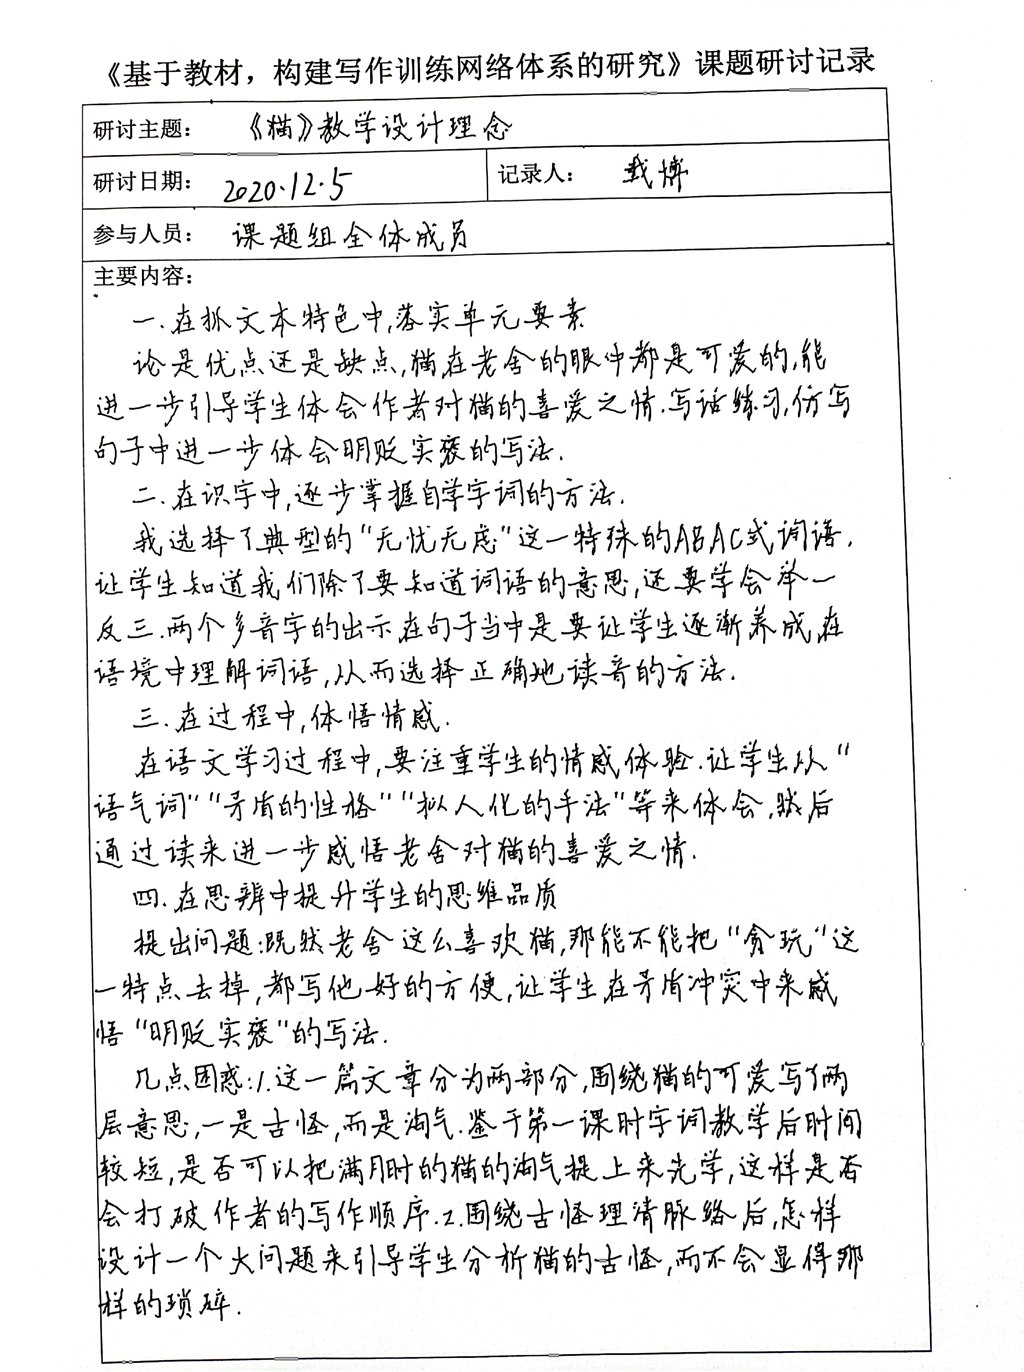 《基于教材，构建写作训练网络体系的研究》课题研讨记录
研讨主题： 《猫》教学设计理念
研讨日期： 2020.12.5 记录人： 戴博
参与人员： 课题组全体成员
主要内容：
一.在抓文本特色中,落实单元要素
论是优点还是缺点,猫在老舍的眼中都是可爱的,能
进一步引导学生体会作者对猫的喜爱之情.写话练习,仿写
句子中进一步体会明贬实褒的写法.
二.在识字中,逐步掌握自学字词的方法.
我选择了典型的“无忧无虑”这一特殊的ABAC式词语.
让学生知道我们除了要知道词语的意思,还要学会举一
反三.两个多音字的出示在句子当中是要让学生逐渐养成,在
语境中理解词语,从而选择正确地读音的方法.
三.在过程中,体悟情感.
在语文学习过程中,要注重学生的情感体验.让学生从“
语气词”“矛盾的性格”“拟人化的手法”等来体会,然后
通过读来进一步感悟老舍对猫的喜爱之情.
四.在思辨中提升学生的思维品质
提出问题:既然老舍这么喜欢猫,那能不能把“贪玩”这
一特点去掉,都写他好的方便,让学生在矛盾冲突中来感
悟“明贬实褒”的写法.
几点困惑:1.这一篇文章分为两部分,围绕猫的可爱写了两
层意思,一是古怪,而是淘气.鉴于第一课时字词教学后时间
较短,是否可以把满月时的猫的淘气提上来先学,这样是否
会打破作者的写作顺序.2.围绕古怪理清脉络后,怎样
设计一个大问题来引导学生分析猫的古怪,而不会显得那
样的琐碎.